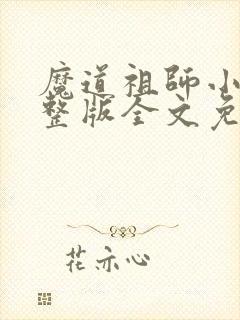 魔道祖師小
整版全文免
花亦心